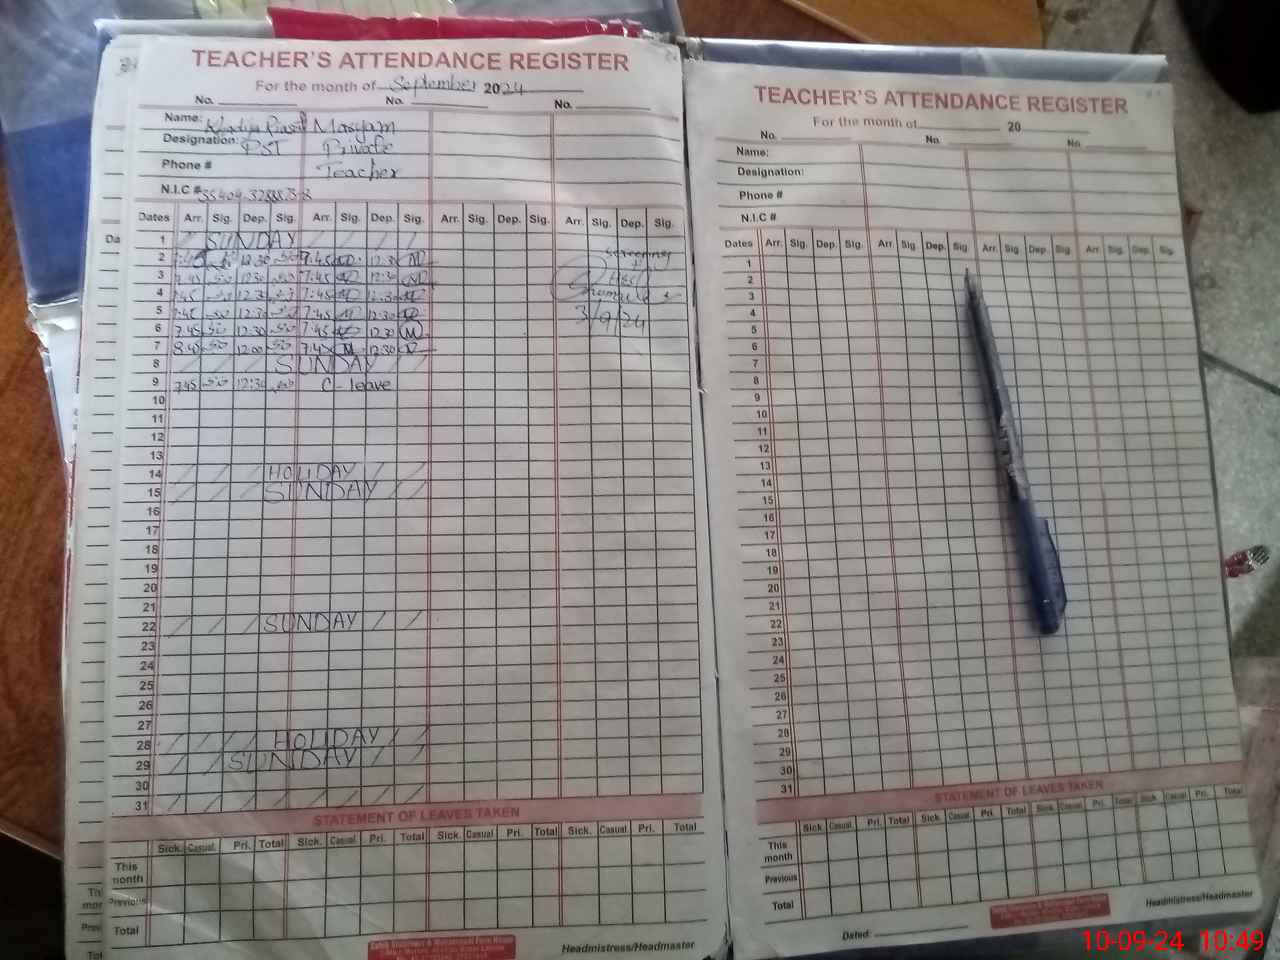 TEACHER'S ATTENDANCE REGISTER
For the month of September 2024
No. No. No.
Name: Khadija Maryam
Designation: PST Private
Phone # Teacher
N.I.C #
Dates Arr. Sig. Dep. Sig. Arr. Sig. Dep. Sig. Arr. Sig. Dep. Sig. Arr. Sig. Dep. Sig.
1 SUNDAY
2 7:45 12:30 7:45 12:30 M Screening
3 7:45 12:30 7:45 12:30
4 7:45 12:30 7:45 12:30
5 7:45 12:30 7:45 12:30 3/9/24
6 7:45 12:30 7:45 12:30 M
7 8:45 12:00 7:45 M 12:30
8 SUNDAY
9 7:45 12:30 C-leave
10
11
12
13
14 HOLIDAY
15 SUNDAY
16
17
18
19
20
21
22 SUNDAY
23
24
25
26
27
28 HOLIDAY
29 SUNDAY
30
31
STATEMENT OF LEAVES TAKEN
Sick. Casual. Pri. Total Sick. Casual. Pri. Total Sick. Casual. Pri. Total Sick. Casual. Pri. Total
This month
Previous
Total
Headmistress/Headmaster
TEACHER'S ATTENDANCE REGISTER
For the month of 20
No. No. No.
Name:
Designation:
Phone #
N.I.C #
Dates Arr. Sig. Dep. Sig. Arr. Sig. Dep. Sig. Arr. Sig. Dep. Sig. Arr. Sig. Dep. Sig.
1
2
3
4
5
6
7
8
9
10
11
12
13
14
15
16
17
18
19
20
21
22
23
24
25
26
27
28
29
30
31
STATEMENT OF LEAVES TAKEN
Sick. Casual. Pri. Total Sick. Casual. Pri. Total Sick. Casual. Pri. Total Sick. Casual. Pri. Total
This month
Previous
Total
Headmistress/Headmaster
Dated:
10-09-24 10:49